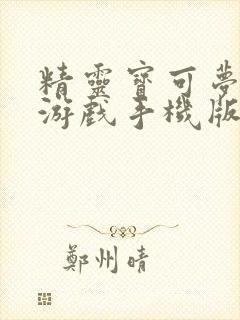 精靈寶可夢
游戲手機版
鄭州晴